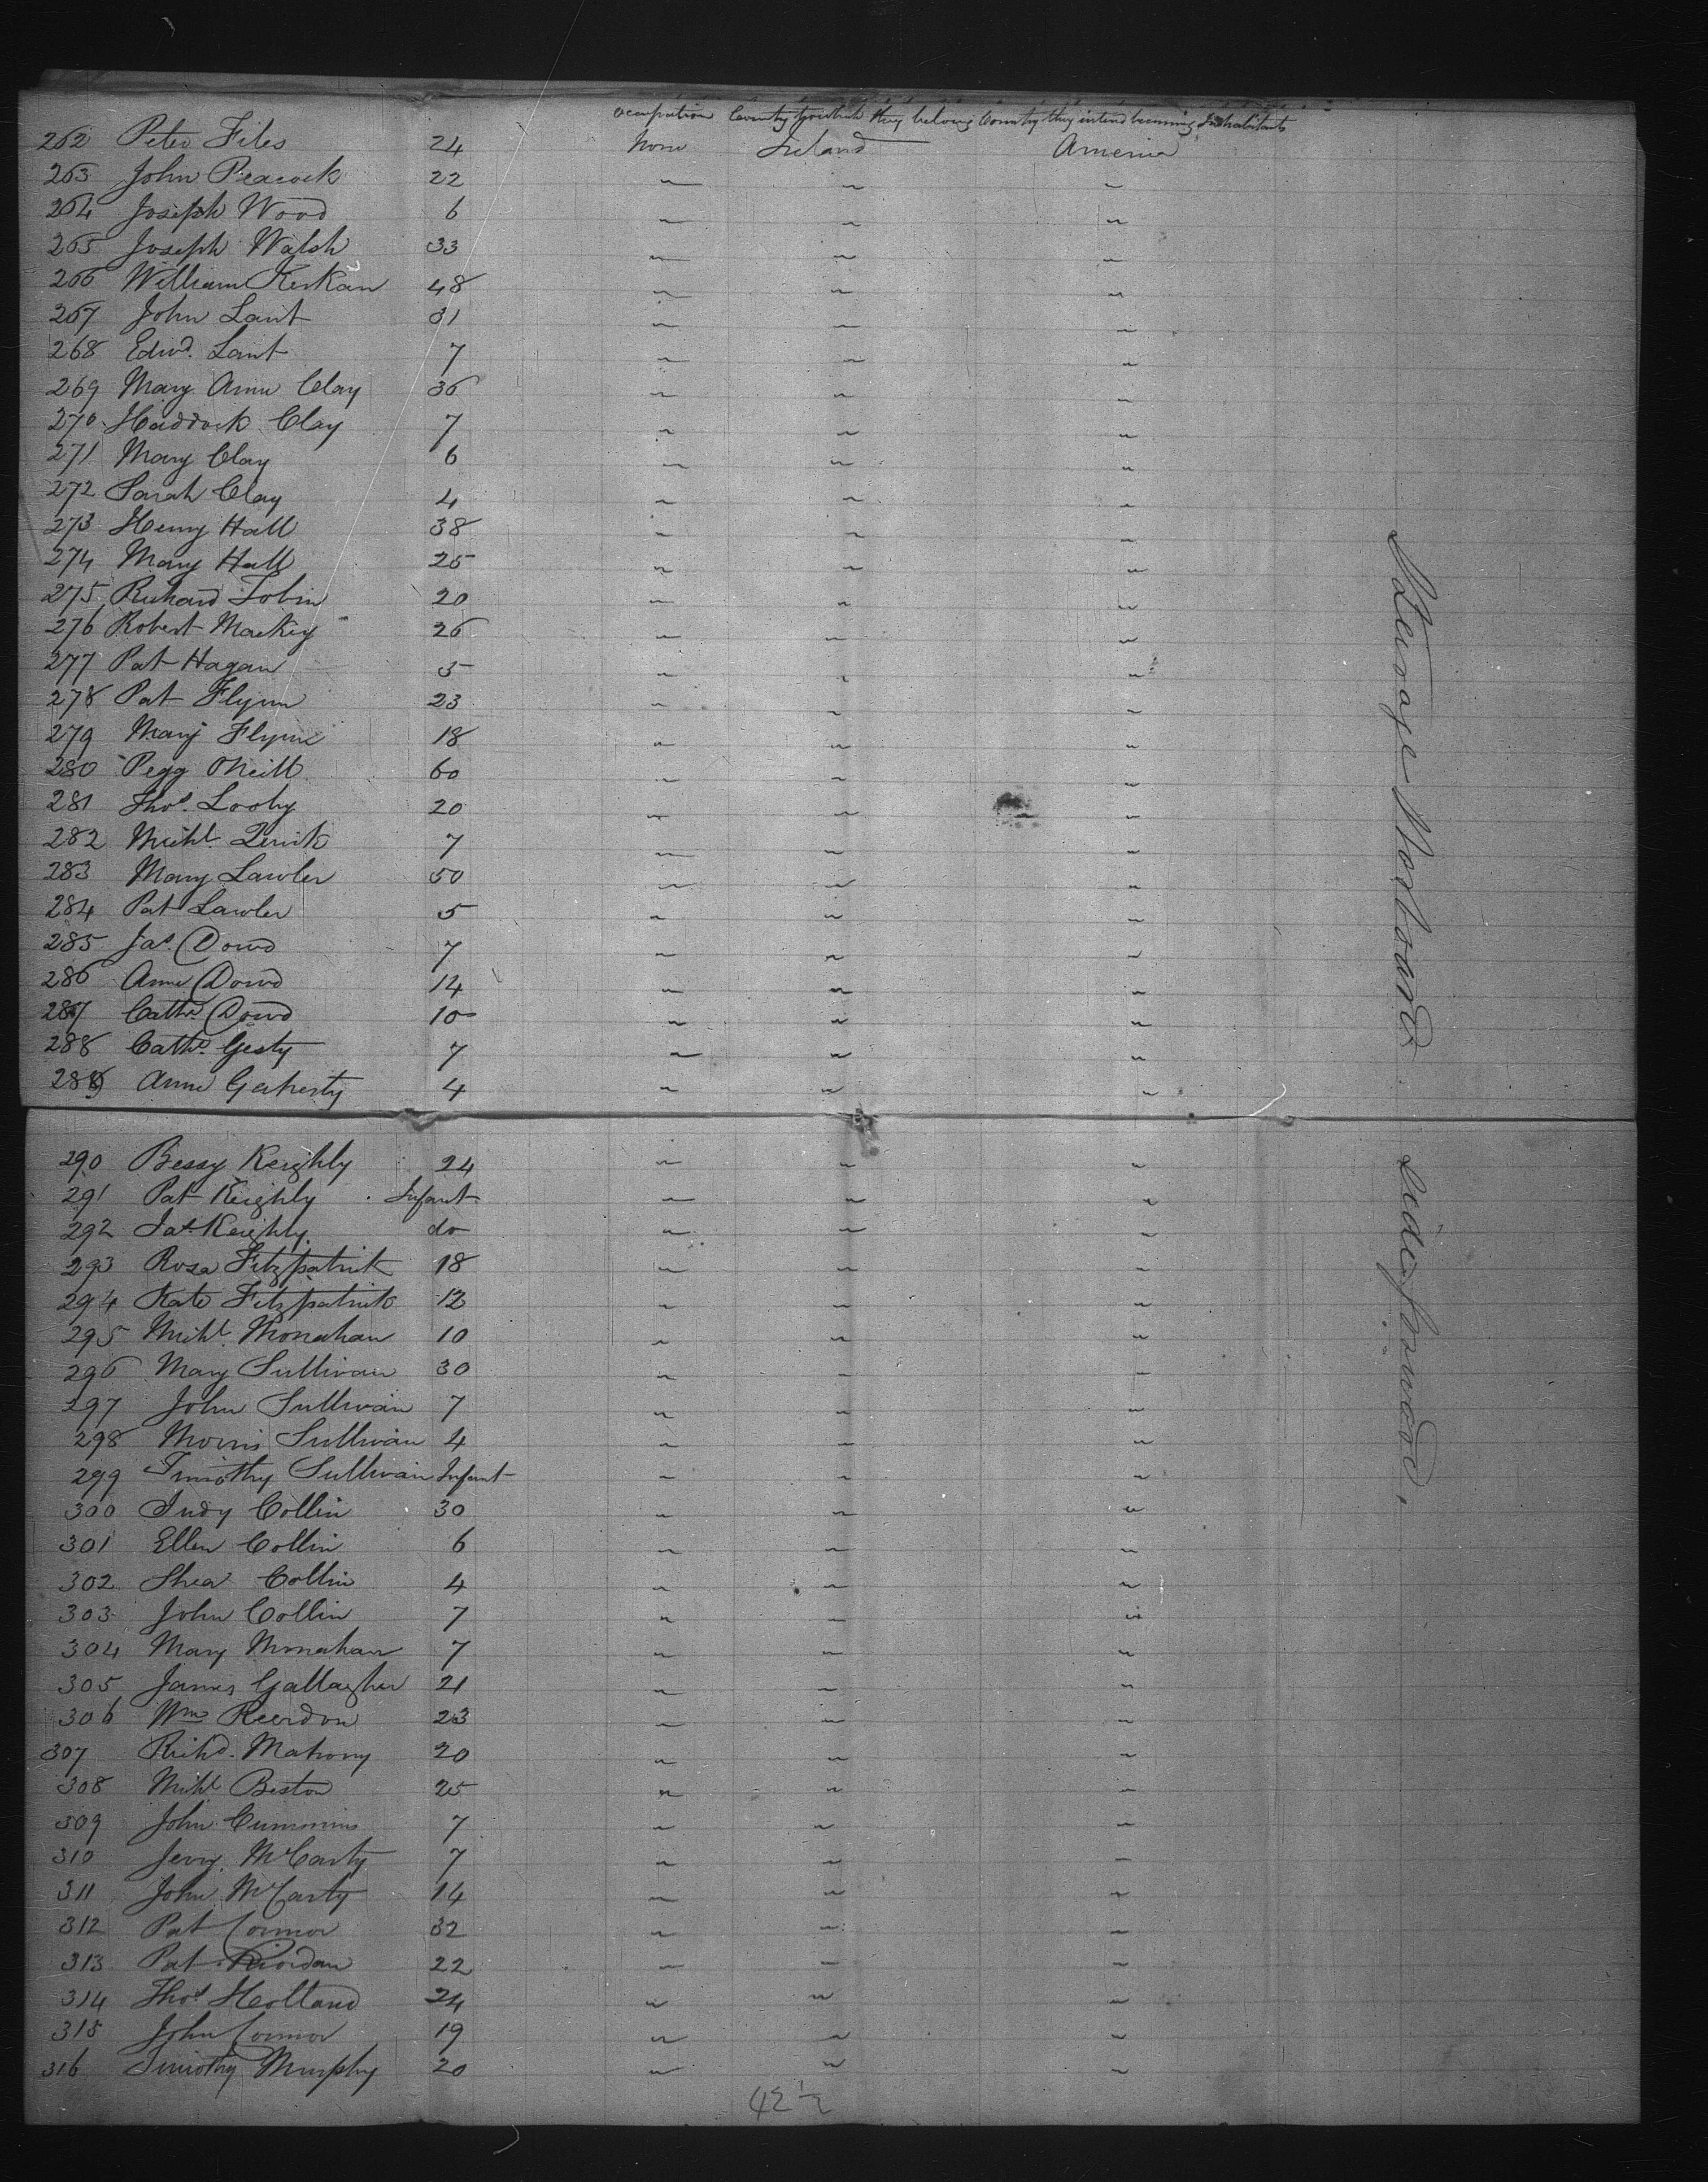 occupation Country to which they belong Country they intend becoming Inhabitants
262 Peter Files 24 None Ireland America
263 John Peacock 22 " " "
264 Joseph Wood 6 " " "
265 Joseph Walsh 33 " " "
266 William Kerkan 48 " " "
267 John Lant 31 " " "
268 Edwd. Lant 7 " " "
269 Mary Anne Clay 36 " " "
270 Haddock Clay 7 " " "
271 Mary Clay 6 " " "
272 Sarah Clay 4 " " "
273 Henry Hall 38 " " "
274 Mary Hall 25 " " "
275 Richard Tobin 20 " " "
276 Robert Mackey 26 " " "
277 Pat Hagan 5 " " "
278 Pat Flynn 23 " " "
279 Mary Flynn 18 " " "
280 Pegg ONeill 60 " " "
281 Thos. Looby 20 " " "
282 Michl. 7 " " "
283 Mary Lawler 50 " " "
284 Pat Lawler 5 " " "
285 Jas. Dowd 7 " " "
286 Anne Dowd 14 " " "
287 Cathe Dowd 10 " " "
288 Cathe. Gesty 7 " " "
289 Anne Gaherty 4 " " "
290 Bessy Keighly 24 " " "
291 Pat Keighly Infant " " "
292 Jas. Keighly do " " "
293 Rosa Fitzpatrick 18 " " "
294 Kate Fitzpatrick 12 " " "
295 Michl. Monahan 10 " " "
296 Mary Sullivan 30 " " "
297 John Sullivan 7 " " "
298 Morris Sullivan 4 " " "
299 Timothy Sullivan Infant " " "
300 Judy Collin 30 " " "
301 Ellen Collin 6 " " "
302 Shea Collin 4 " " "
303 John Collin 7 " " "
304 Mary Monahan 7 " " "
305 James Gallagher 21 " " "
306 Wm Reerdon 23 " " "
307 Richd. Mahony 20 " " "
308 Michl Beston 25 " " "
309 John Cummins 7 " " "
310 Jerry McCarty 7 " " "
311 John McCarty 14 " " "
312 Pat Connor 32 " " "
313 Pat Riordan 22 " " "
314 Thos Holland 24 " " "
315 John Connor 19 " " "
316 Timothy Murphy 20 " " "
42 1/2
Steerage Starboard
Side forward,